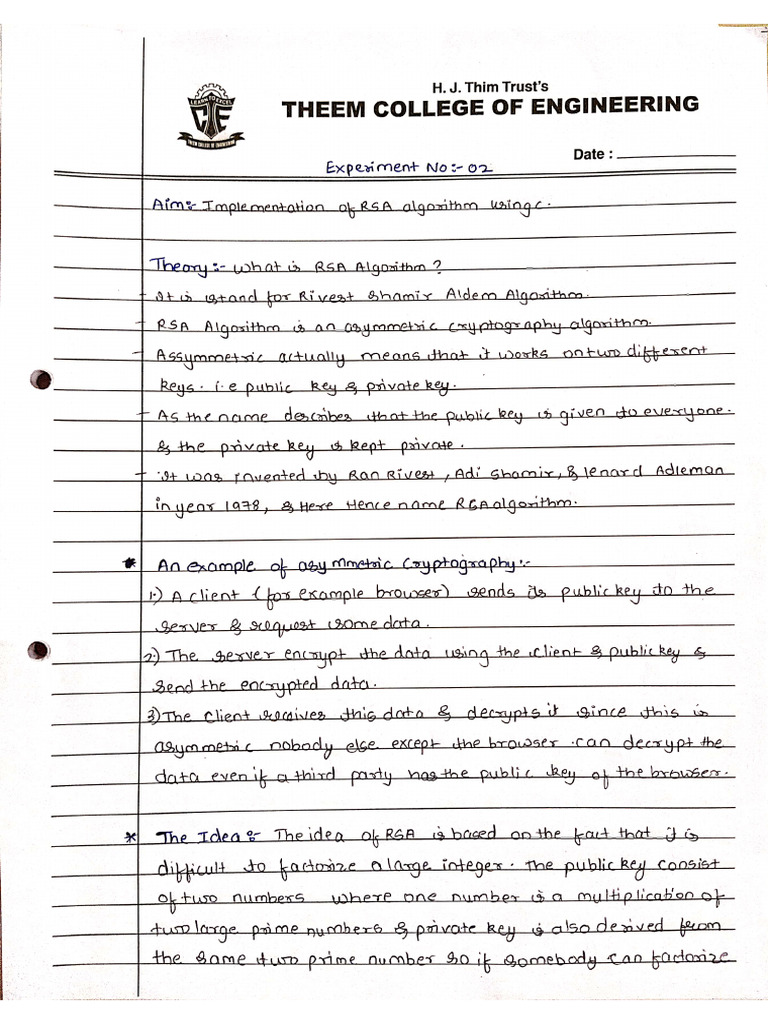 H. J. Thim Trust's
THEEM COLLEGE OF ENGINEERING
THEEM COLLEGE OF ENGINEERING
Date :
Experiment No:- 02
Aim:- Implementation of RSA algorithm using c.
Theory:- What is RSA Algorithm?
- It is stand for Rivest Shamir Aldem Algorithm.
- RSA Algorithm is an asymmetric cryptography algorithm.
- Assymmetric actually means that it works on two different
keys. i.e public key & private key.
- As the name describes that the public key is given to everyone.
& the private key is kept private.
- it was invented by Ran Rivest, Adi Shamir, & lenard Adleman
in year 1978, & Here Hence name RSA algorithm.
* An example of asymmetric cryptography:-
1.) A client (for example browser) sends its public key to the
server & request some data.
2.) The server encrypt the data using the client & public key &
send the encrypted data.
3) The client receives this data & decrypts it since this is
asymmetric nobody else except the browser can decrypt the
data even if a third party has the public key of the browser.
* The Idea:- The idea of RSA is based on the fact that it is
difficult to factorize a large integer. The public key consist
of two numbers where one number is a multiplication of
two large prime numbers & private key is also derived from
the same two prime number so if somebody can factorize